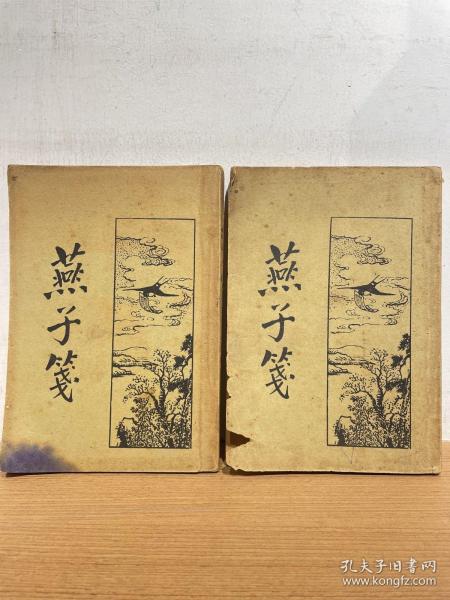 燕子箋
燕子箋
孔夫子旧书网
www.kongfz.com